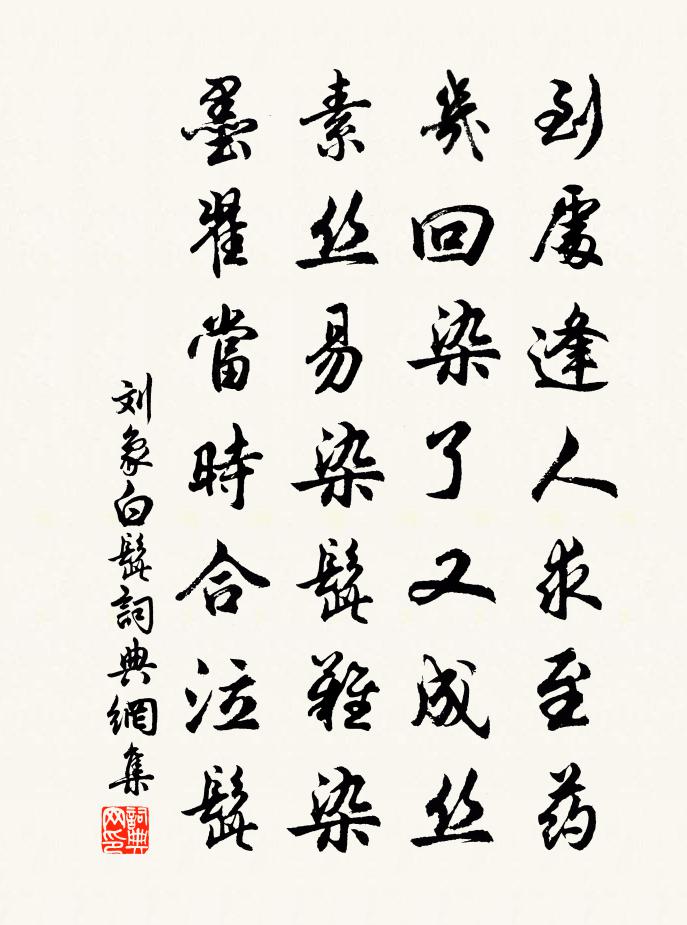 到處逢人求至药
幾回染了又成丝
素丝易染髭難染
墨翟當時合泣髭
刘象白髭詞典網集
詞典网印